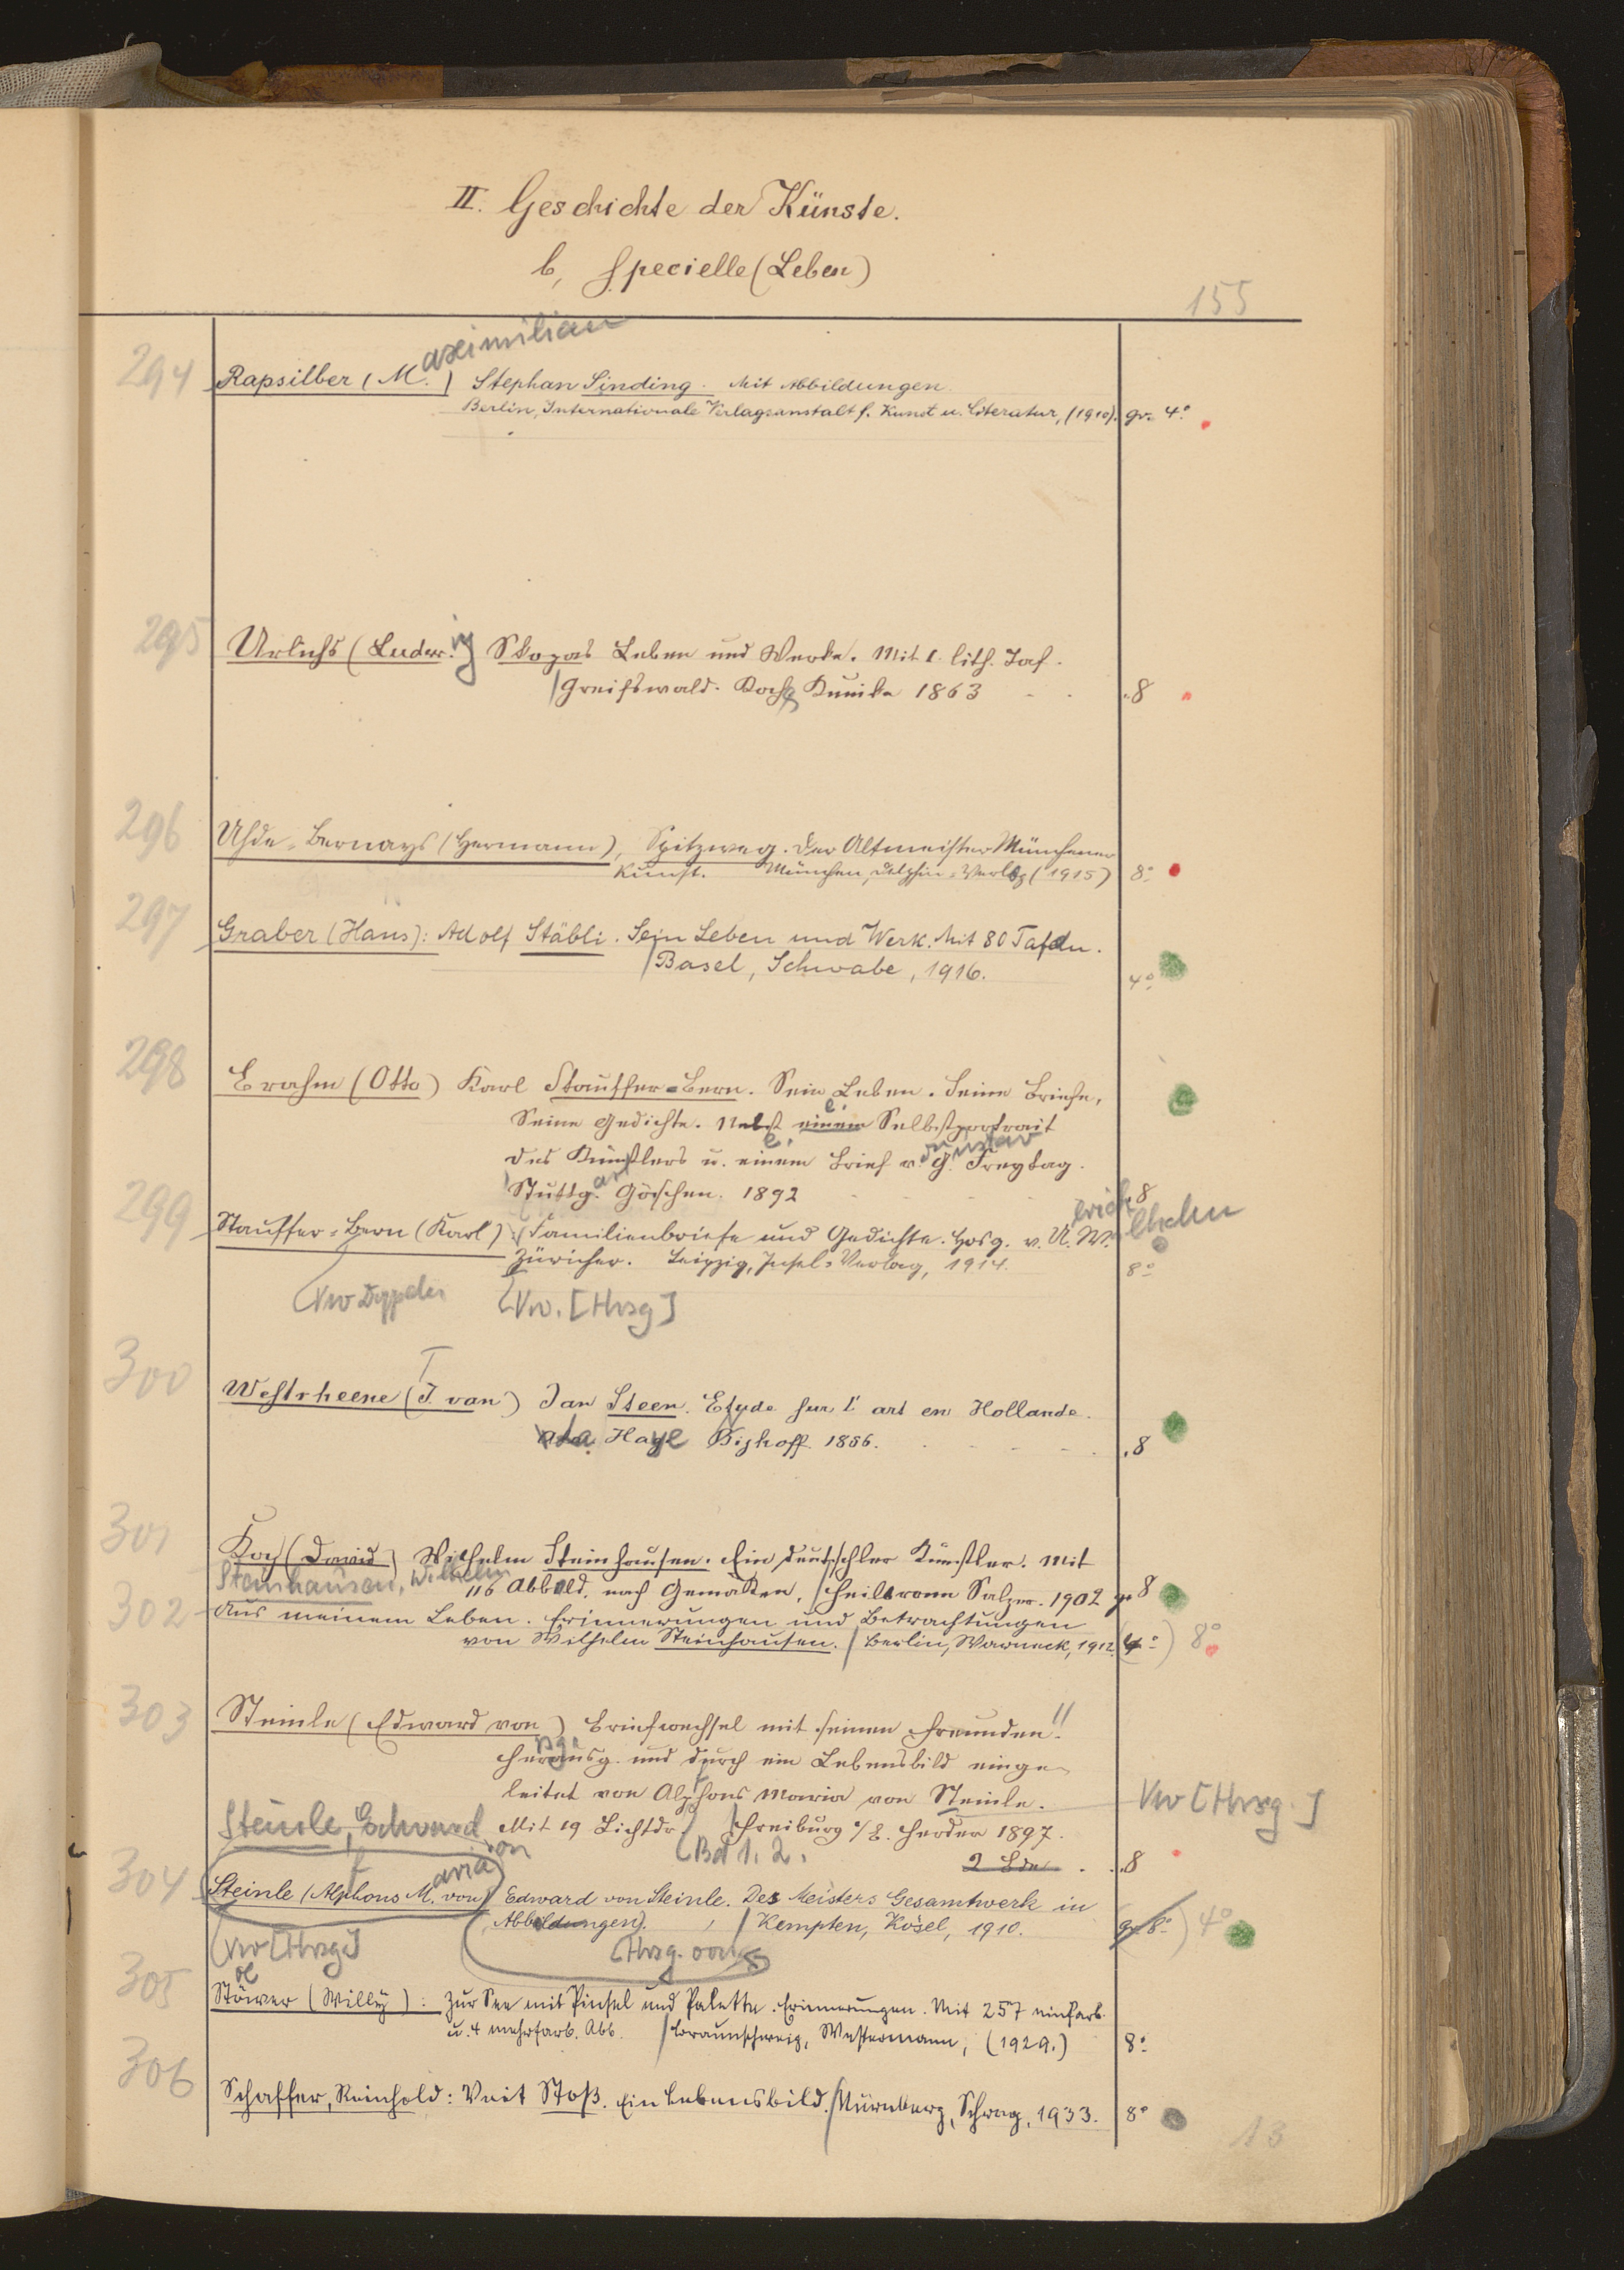 II. Geschichte der Künste.
b, Specielle (Leben)
155
294 Rapsilber (M.aximilian) Stephan Sinding. Mit Abbildungen.
Berlin, Internationale Verlagsanstalt f. Kunst u. Literatur, (1910). gr. 4°
295 Urlichs (Ludw.ig) Skopas Leben und Werke. Mit 1. lith. Taf.
Greifswald. Koch Kunike 1863 8
296 Uhde-Bernays (Hermann), Spitzweg. Der Altmeister Münchener
Kunst. München, Delphin-Verlag (1915) 8°
297 Graber (Hans): Adolf Stäbli. Sein Leben und Werk. Mit 80 Tafeln.
Basel, Schwabe, 1916. 4°
298 Brahm (Otto) Karl Stauffer-Bern. Sein Leben. Seine Briefe,
Seine Gedichte. Nebst einem Selbstportrait
des Künstlers u. einem Brief v. Gustav Freytag.
Stuttg.art Göschen. 1892 8
299 Stauffer-Bern (Karl): Familienbriefe und Gedichte. Hrsg. v. U.lrich W.ilhelm
Züricher. Leipzig, Insel-Verlag, 1914. 8°
Vw. [Hrsg]
300 Westrheene (T van) Jan Steen. Etude sur l'art en Hollande.
La Haye Nijhoff. 1856. 8
301 Koch (David) Wilhelm Steinhausen. Ein deutscher Künstler. Mit
116 Abbild. nach Gemälden, Heilbronn Salzer. 1902 gr 8
Steinhausen, Wilhelm
302 Aus meinem Leben. Erinnerungen und Betrachtungen
von Wilhelm Steinhausen. Berlin, Warneck, 1912. (4°) 8°
303 Steinle (Edward von) Briefwechsel mit seinen Freunden.
Herausg. und durch ein Lebensbild einge-
leitet von Alphons Maria von Steinle. Vw [Hrsg.]
Mit 19 Lichtdr. Freiburg i/B. Herder 1897.
Bd 1. 2. 2 Bde 8
Steinle, Edward von
304 Steinle (Alphons M.aria von) Edward von Steinle. Des Meisters Gesamtwerk in
Abbildungen. Kempten, Kösel, 1910. (gr 8°) 4°
(Vw [Hrsg] Hrsg. von
305 Stöwer (Willy): Zur See mit Pinsel und Palette. Erinnerungen. Mit 257 einfarb.
u. 4 mehrfarb. Abb. Braunschweig, Westermann, (1929.) 8°
306 Schaffer, Reinhold: Veit Stoß. Ein Lebensbild. Nürnberg, Schrag, 1933. 8°
13